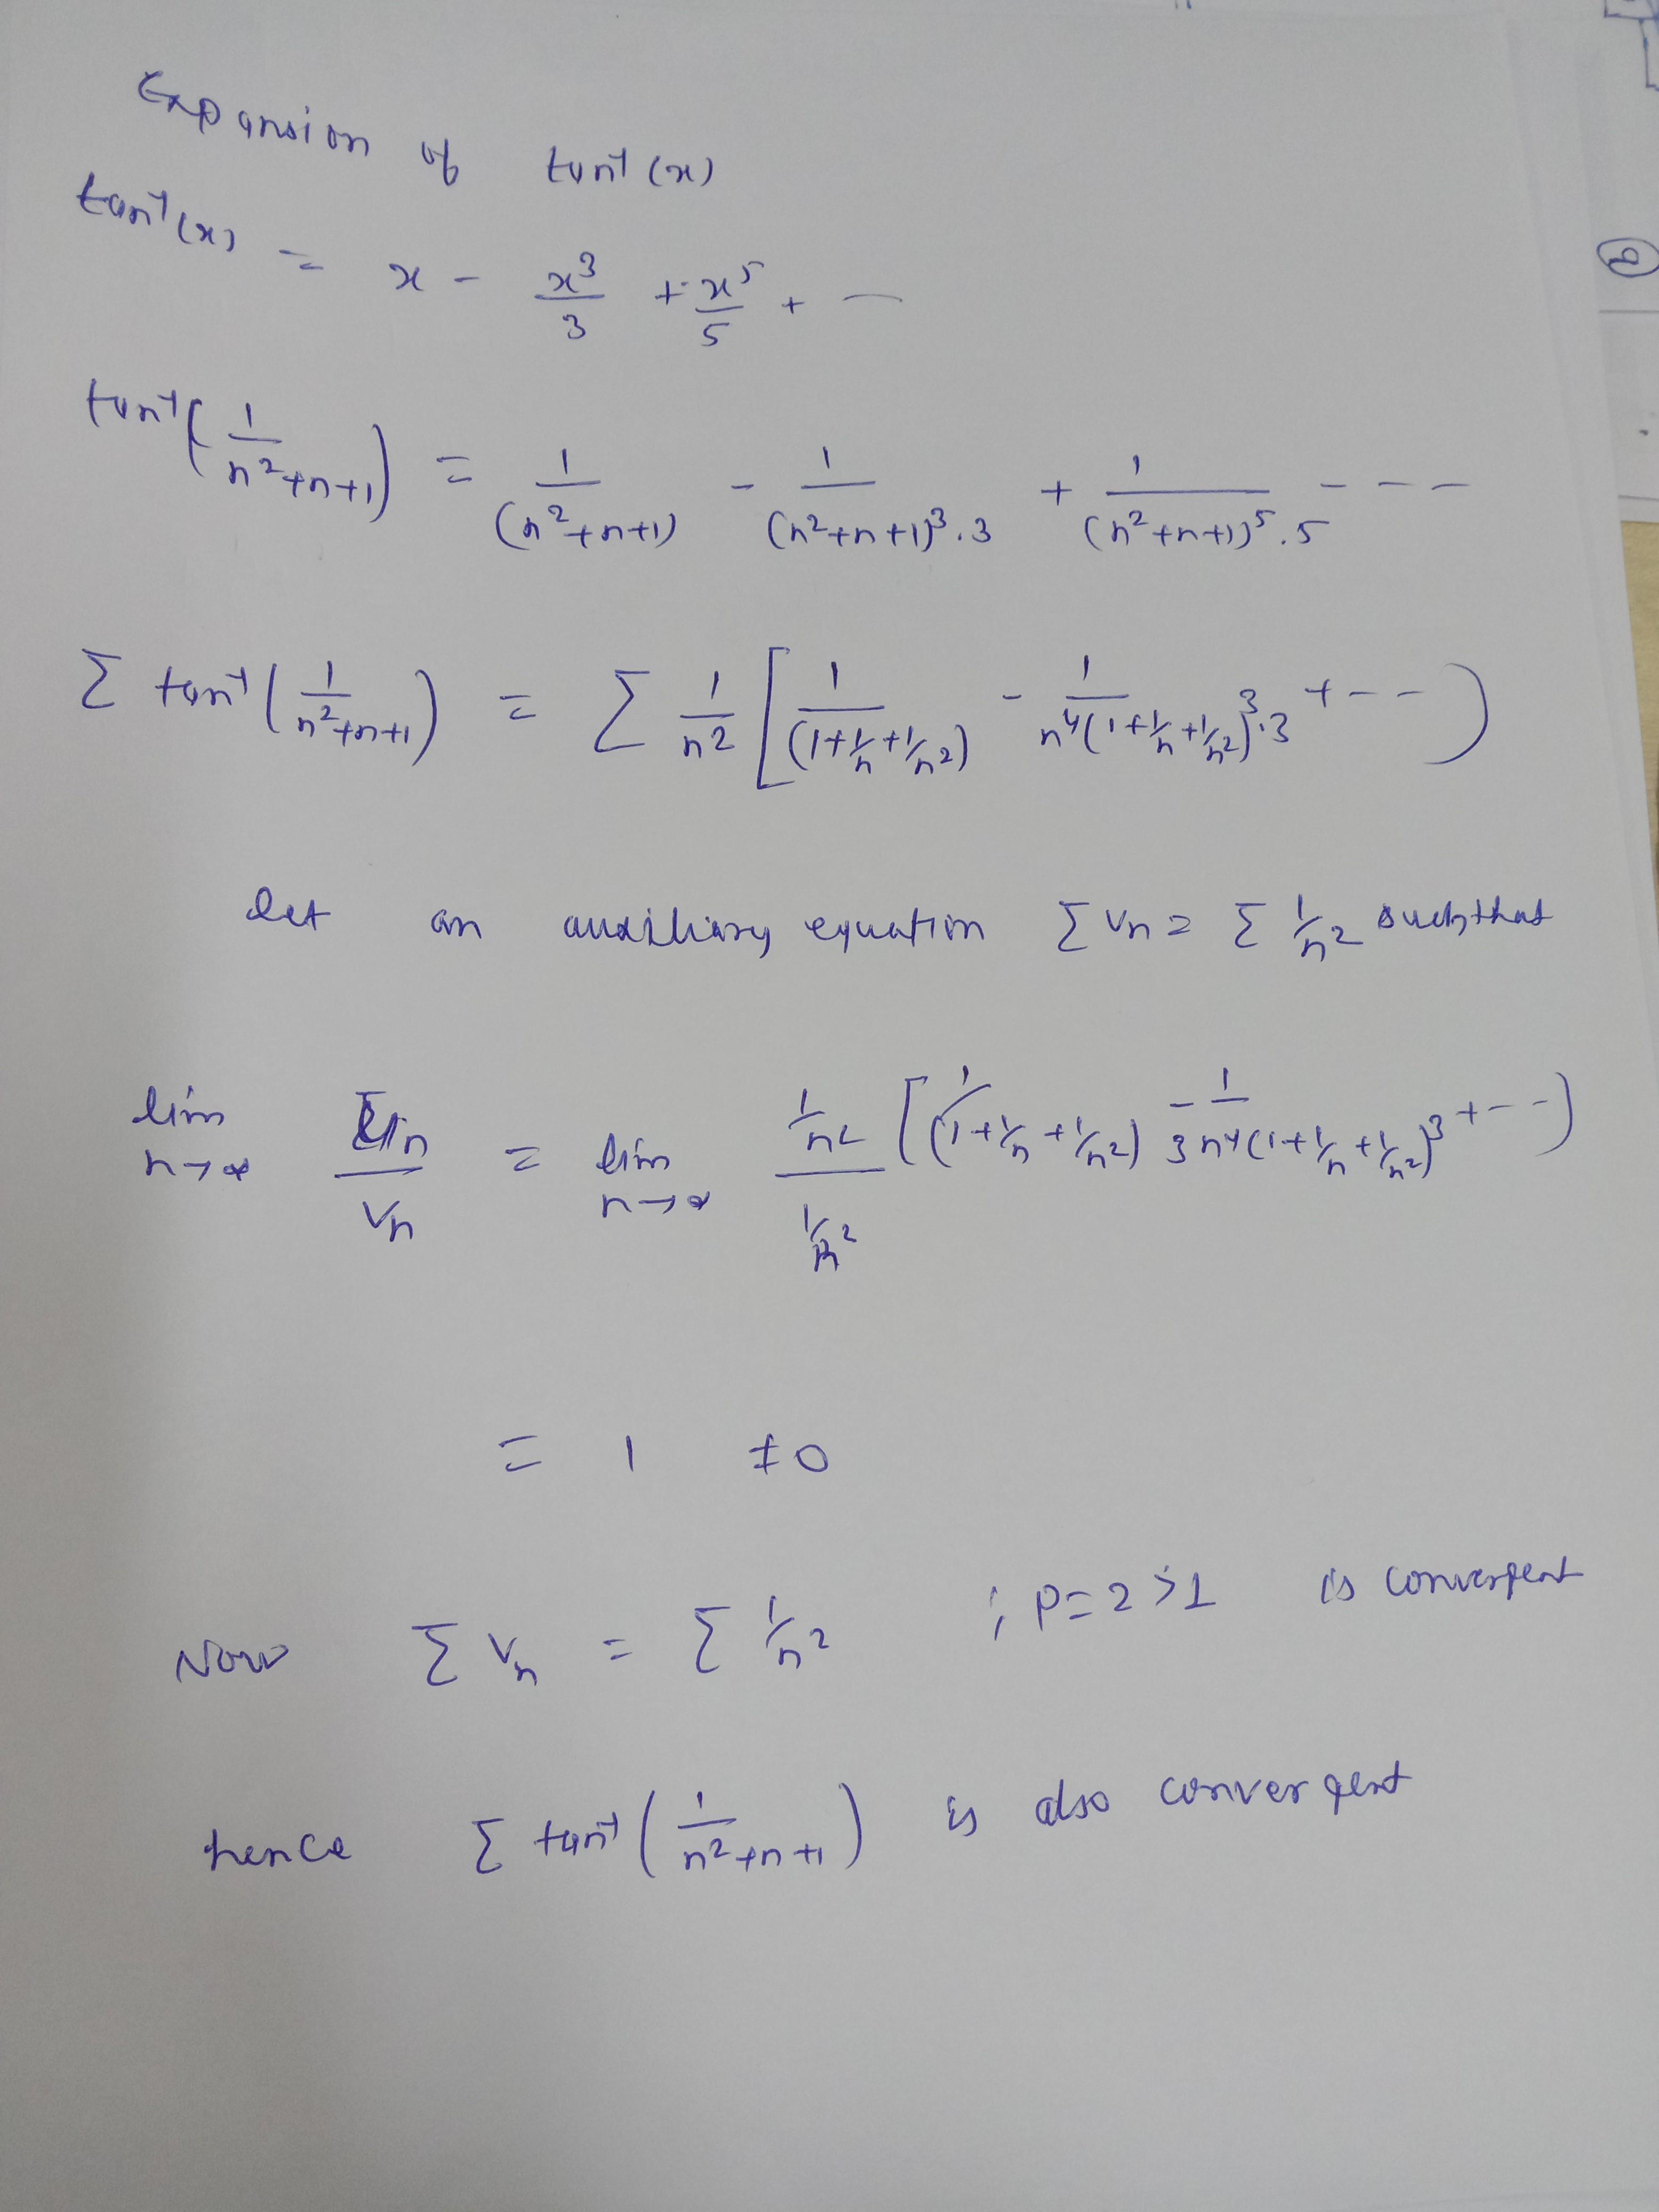 Expansion of tan⁻¹(x)
tan⁻¹(x) = x - x³/3 + x⁵/5 + —
tan⁻¹(1/(n²+n+1)) = 1/(n²+n+1) - 1/((n²+n+1)³.3) + 1/((n²+n+1)⁵.5) - - - -
Σ tan⁻¹(1/(n²+n+1)) = Σ 1/n² [1/(1+1/n+1/n²) - 1/(n⁴(1+1/n+1/n²)³.3) + - - )
let an auxiliary equation Σ vn = Σ 1/n² such that
lim n→∞ Un/Vn = lim n→∞ 1/n² [1/(1+1/n+1/n²) - 1/(3n⁴(1+1/n+1/n²)³) + - - ) / 1/n²
= 1 ≠ 0
Now Σ Vn = Σ 1/n² ; P=2>1 is convergent
hence Σ tan⁻¹(1/(n²+n+1)) is also convergent